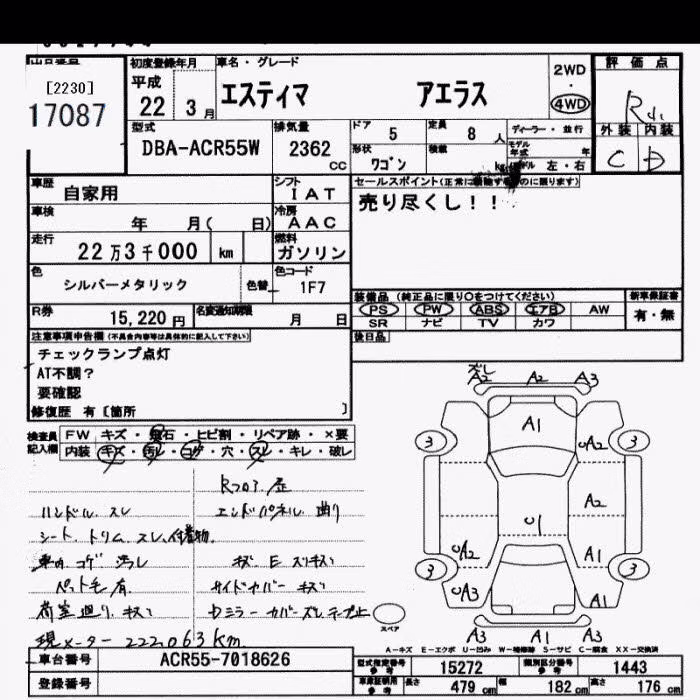 [2230]
17087
初度登録年月
平成
22 3 月
車名・グレード
エスティマ アエラス
2WD
・
4WD
評価点
外装 内装
C D
型式
DBA-ACR55W
排気量
2362 cc
ドア 5
定員 8 人
ディーラー・並行
形状 ワゴン
積載 kg
モデル年式 年
左・右
車歴 自家用
シフト IAT
セールスポイント(正常に機能するものに限ります)
売り尽くし!!
車検 年 月( 日)
冷房 AAC
走行 22万3千000 km
燃料 ガソリン
色 シルバーメタリック
色替
色コード 1F7
装備品 (純正品に限り〇をつけてください)
新車保証書
PS PW ABS エアB AW
有・無
SR ナビ TV カワ
後日品
R券 15,220 円
名変通知期限 月 日
注意事項申告欄 (不具合内容等は具体的に記入して下さい)
チェックランプ点灯
AT不調?
要確認
修復歴 有 [箇所 ]
検査員記入欄
FW キズ・飛石・ヒビ割・リペア跡・×要
内装 キズ・汚レ・コゲ・穴・スレ・キレ・破レ
ズレ
A2 A2 A3
A1
3 3
UA2
A2
U1
UA2 A1
3 3
UA3 A1
A3 A1 A3
スペア
Rフロア 歪
ハンドル スレ エンドパネル 曲り
シート トリム スレ、付着物
車内 コゲ 汚レ キズ E スリキズ
ペット毛 有 サイドカバー キズ
荷室廻り キズ Dミラー カバーズレ テープ止
現メーター 222,063 Km
A-キズ E-エクボ U-凹み W-補修跡 S-サビ C-腐食 XX-交換済
車台番号 ACR55-7018626
登録番号
型式指定番号 参考 15272
類別区分番号 参考 1443
車庫証明用 参考 長さ 479 cm 幅 182 cm 高さ 176 cm